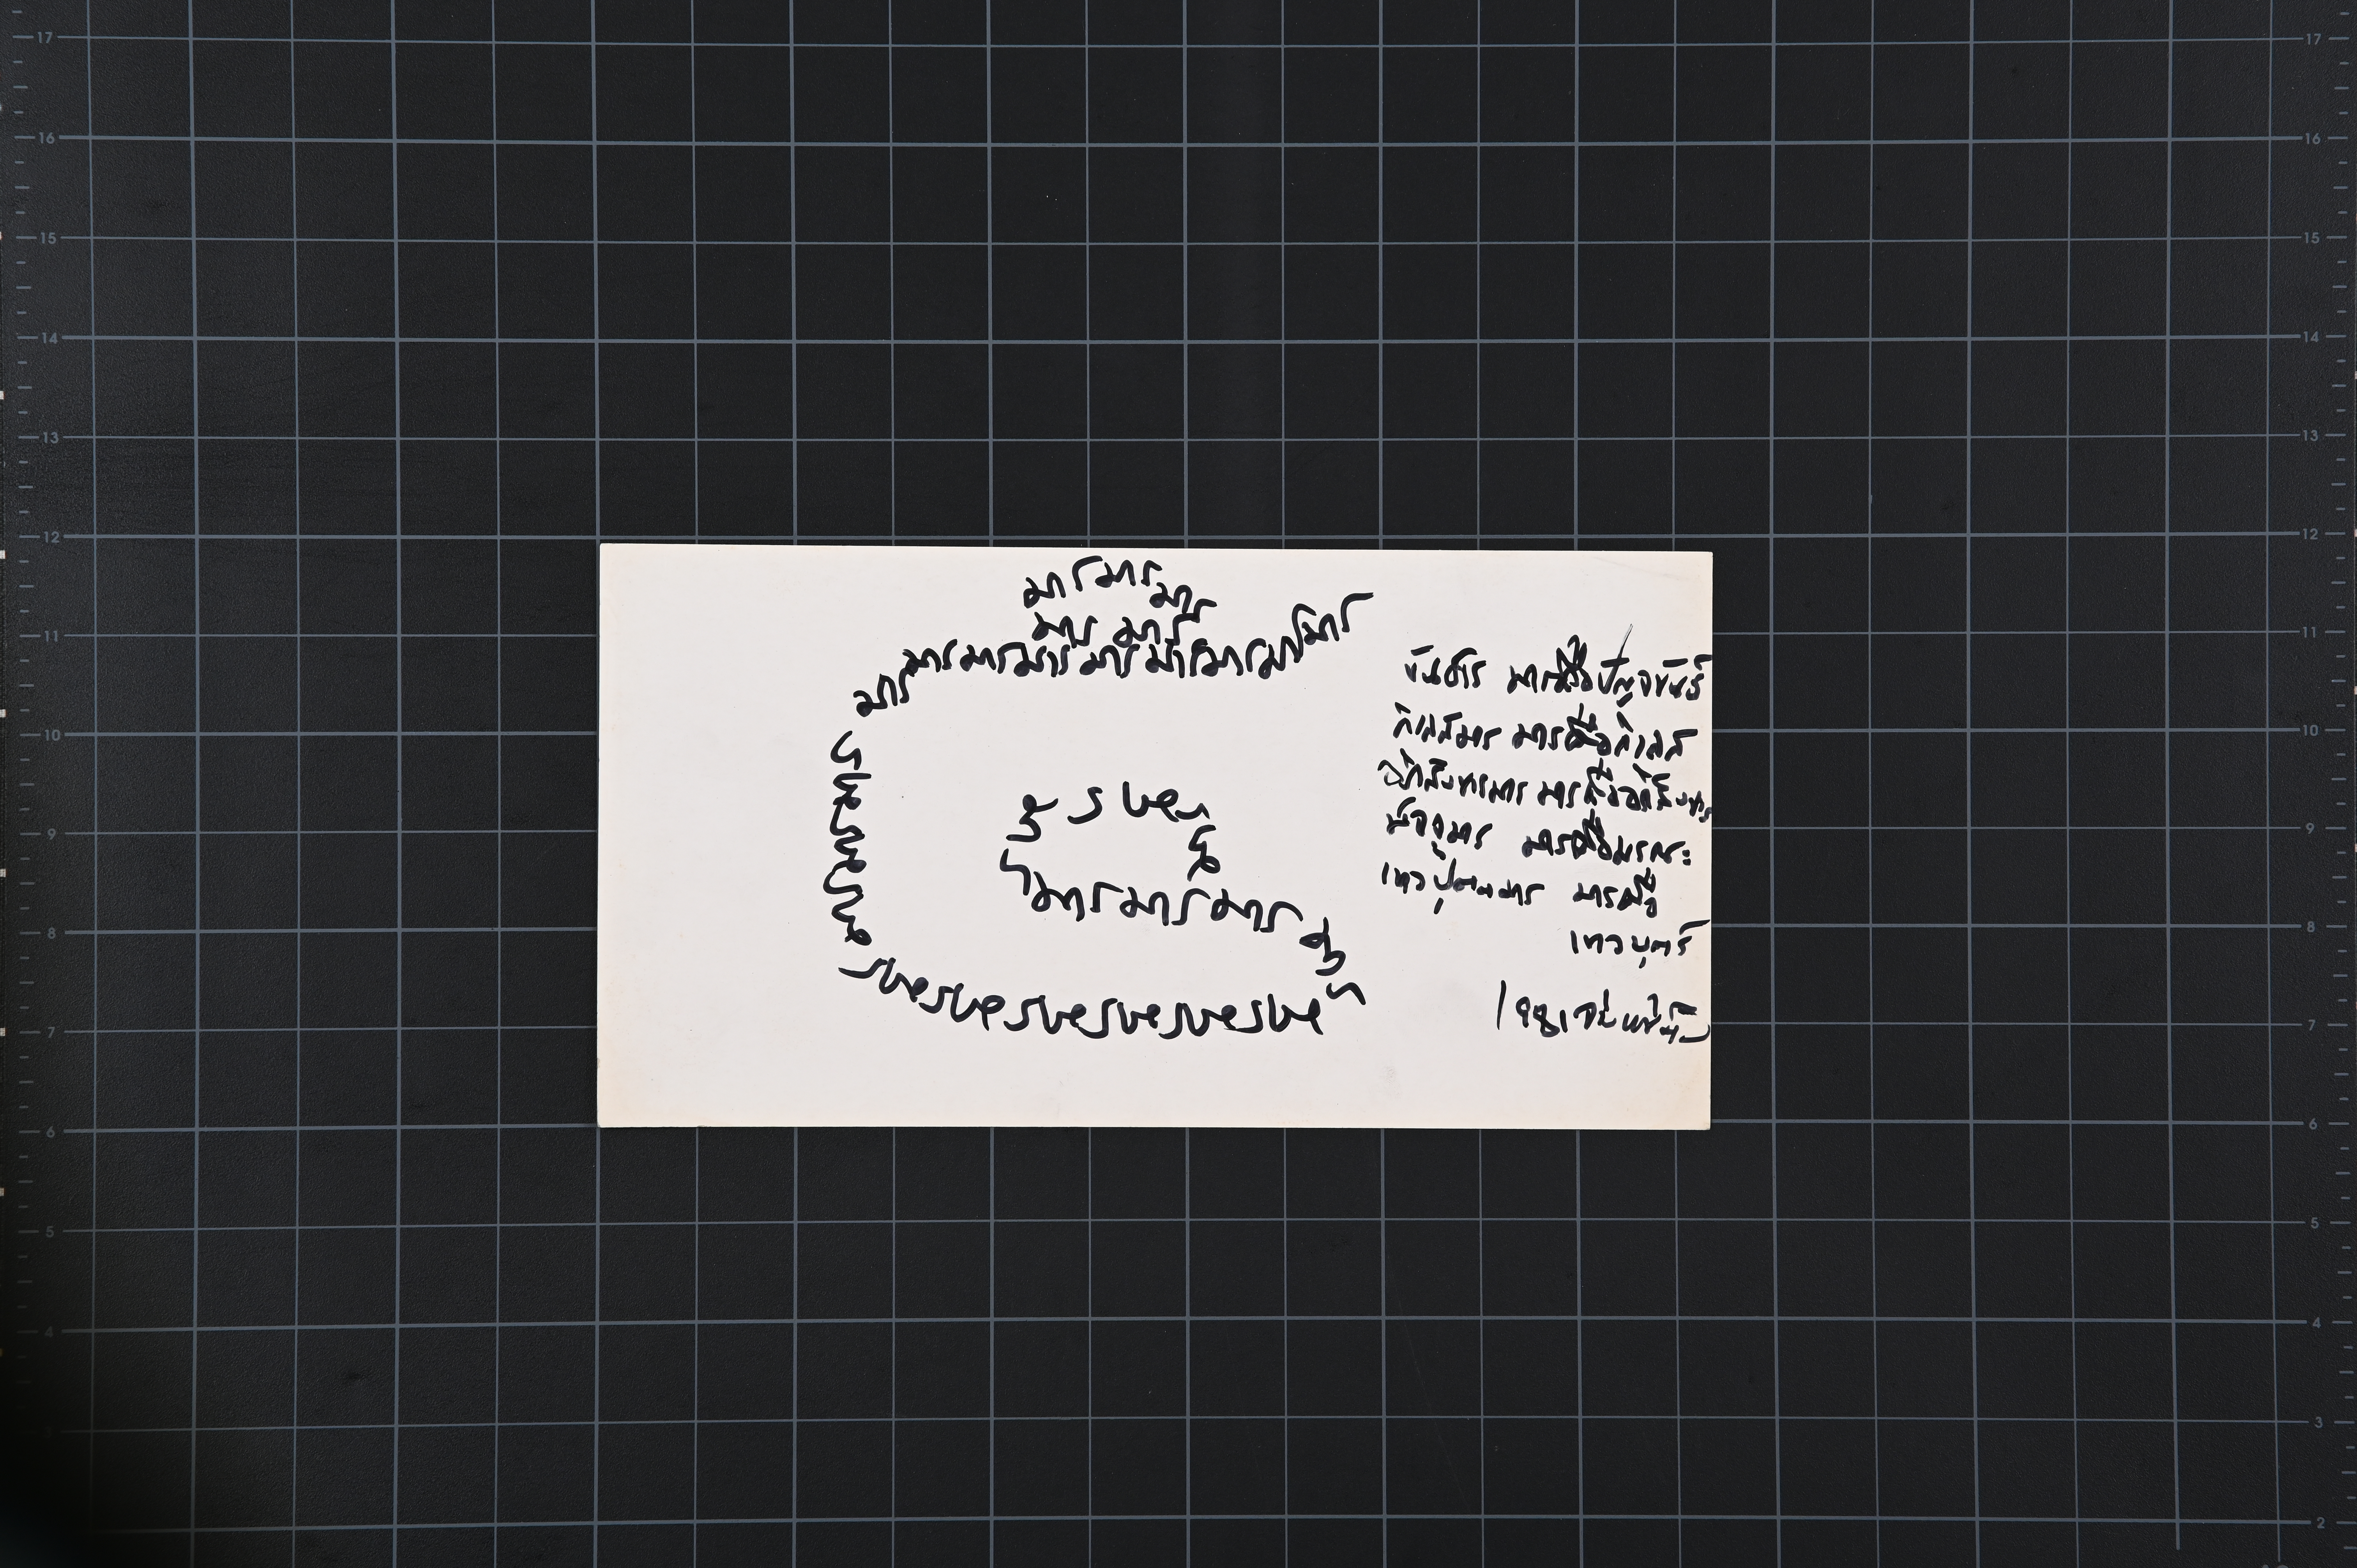 มารมารมาร
มาร มาร
มารมารมารมารมารมารมารมาร
มารมารมาร
มารมาร
มาร
มารมารมาร
มาร
มารมารมารมารมารมาร
มารคือปัญจขันธ์
กิเลสมาร มารคือกิเลส
อภิสังขารมาร มารคืออภิสังขาร
มัจจุมาร มารคือมรณะ
เทวปุตตมาร มารคือ
เทวบุตร